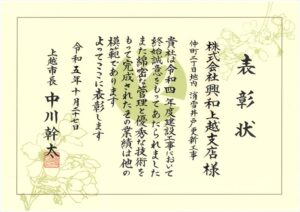 表彰状
株式会社興和上越支店 様
仲町三丁目地内 消雪井戸更新工事
貴社は令和四年度建設工事において
終始誠意をもってあたられました
また綿密な管理と優秀な技術を
もって完成されたその業績は他の
模範であります
よってここに表彰します
令和五年十月二十七日
上越市長 中川幹太